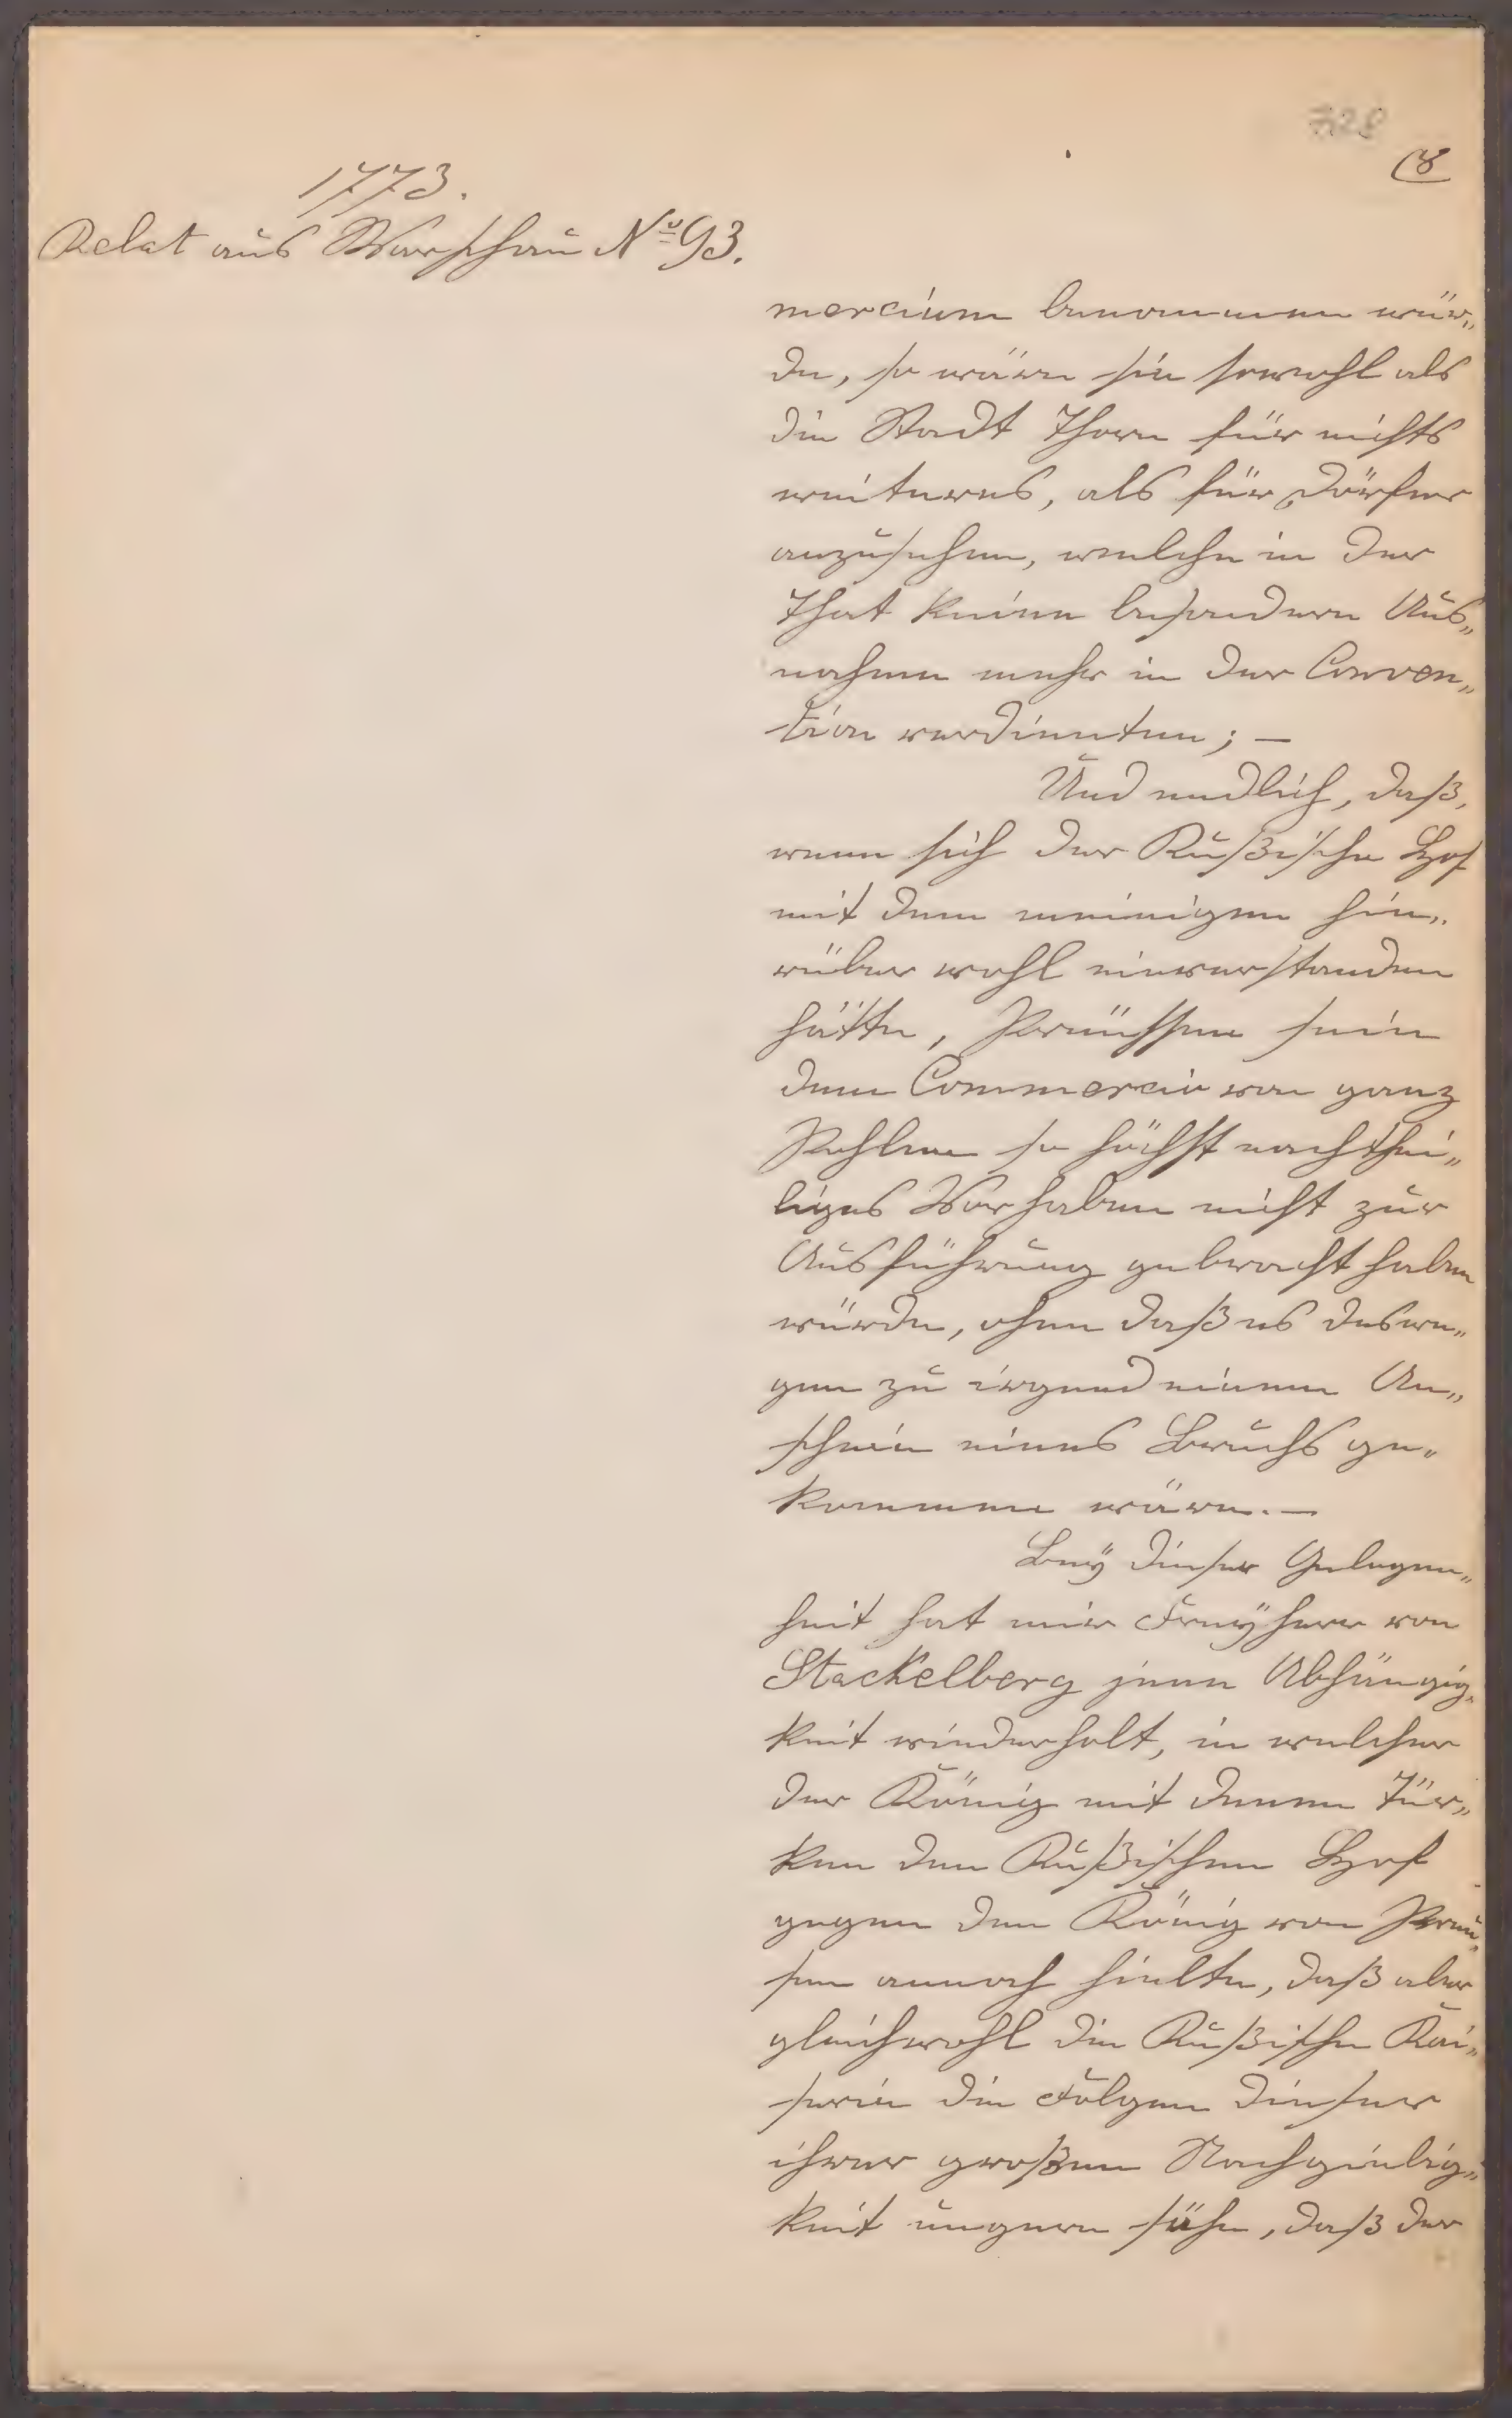 728
8
1773.
Relat aus Warschau No 93.
mercium benommen wür„
de, so wären sie sowohl als
die Stadt Thorn für nichts
weiteres, als für Dörfer
anzusehen, welche in der
That keine besondern Aus„
nahme mehr in der Conven„
tion verdienten; —
Und endlich, daß,
wenn sich der Rußische Hof
mit dem meinigen hie„
rüber wohl einverstanden
hätte, Preüssen sein
dem Commercio von ganz
Pohlen so höchst nachthei„
liges Vorhaben nicht zur
Ausführung gebracht haben
würde, ohne daß es deswe„
gen zu irgend einem An„
schein eines Bruchs ge„
kommen wäre. —
Beÿ dieser Gelegen„
heit hat mir Freÿherr von
Stackelberg jene Abhängig„
keit wiederholt, in welcher
der König mit denen Tür„
ken den Rußischen Hof
gegen den König von Preu„
sen annoch hielte, daß aber
gleichwohl die Rußische Kai„
serin die Folgen dieser
ihrer großen Nachgiebig„
keit ungern sähe, daß der